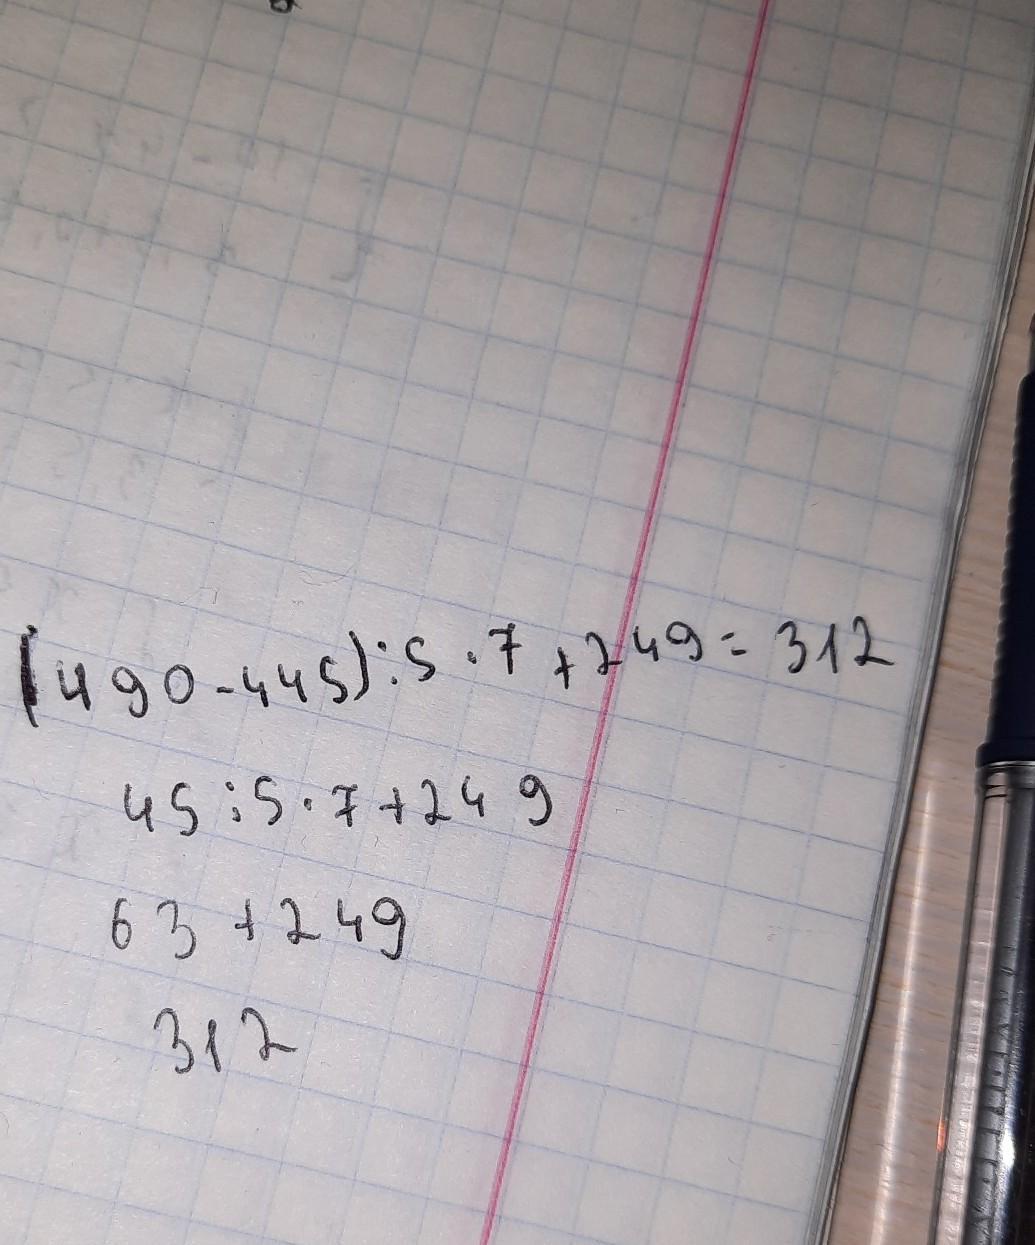 (490-445):5·7+249=312
45:5·7+249
63+249
312